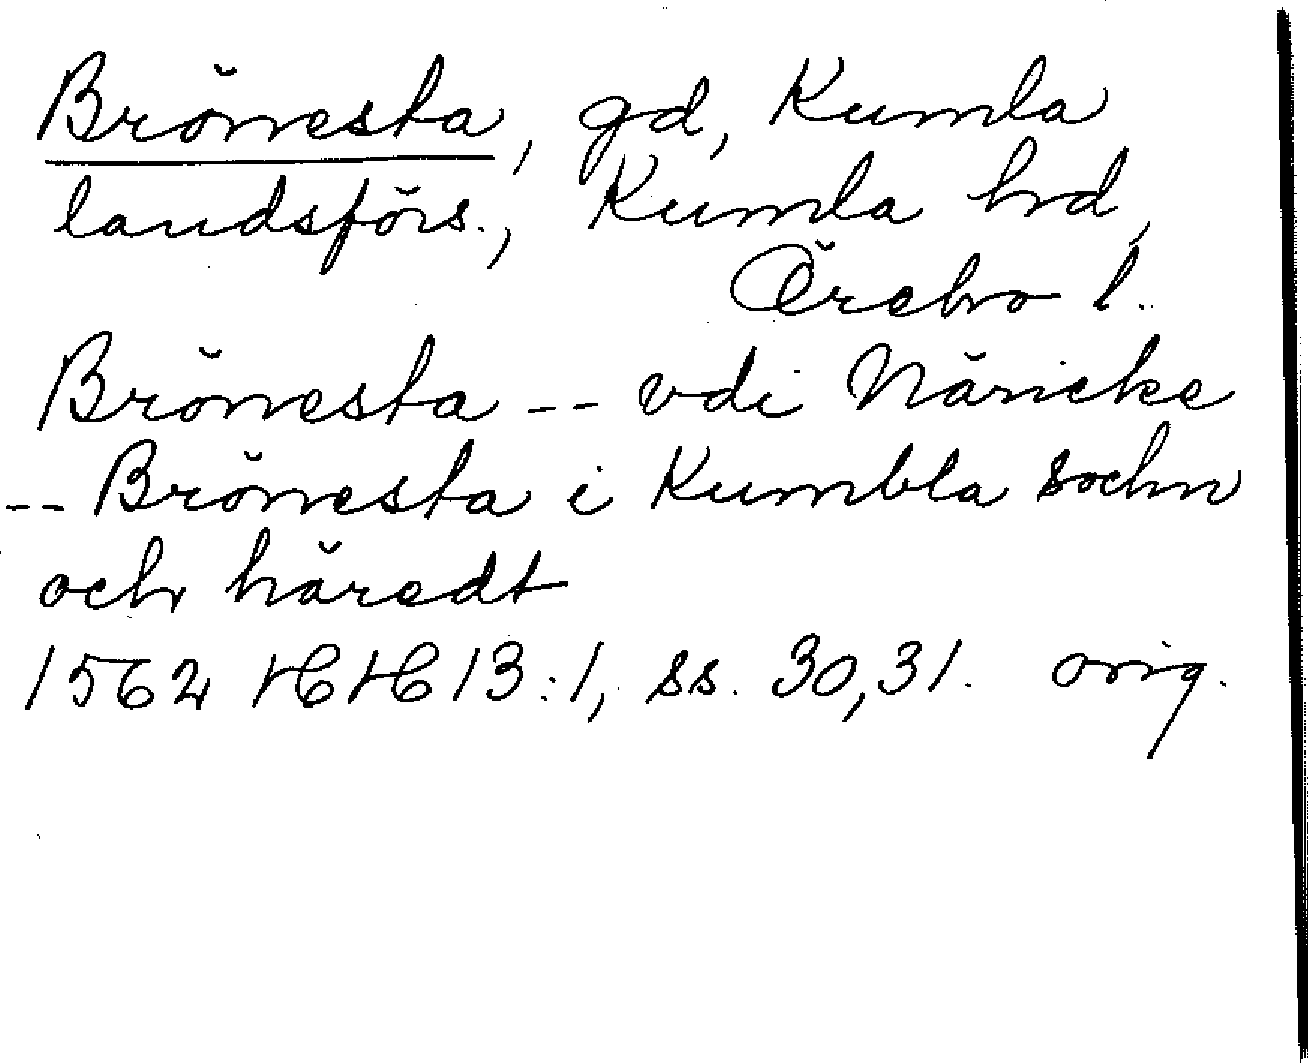 Brönnesta, gd, Kumla
landsförs., Kumla hd,
Örebro l.
Brönnesta -- vdi Näricke
-- Brönnesta i Kumbla sochn
och häredt
1562 HH 13:1, ss. 30,31. orig.